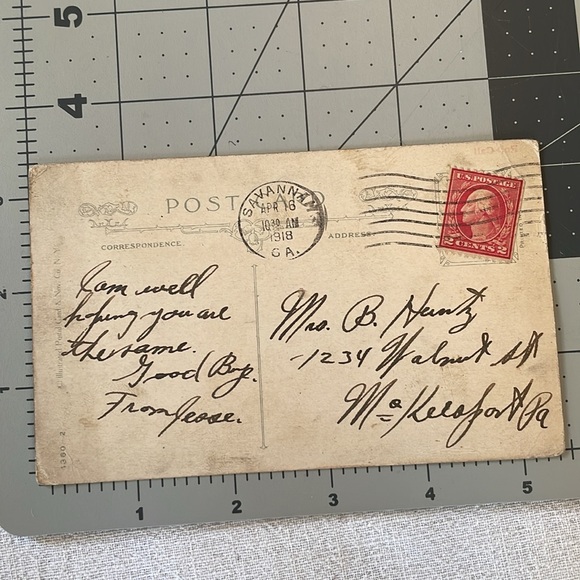 5
4
3
2
1
POST
SAVANNAH
APR 6
10 30 AM
1918
GA.
U.S. POSTAGE
2 CENTS 2
CORRESPONDENCE
ADDRESS
I am well
hoping you are
the same.
Good Bye.
From Jesse.
Mrs. B. Huntz
-1234 Walnut St
McKeesport Pa
1380 2
1 2 3 4 5